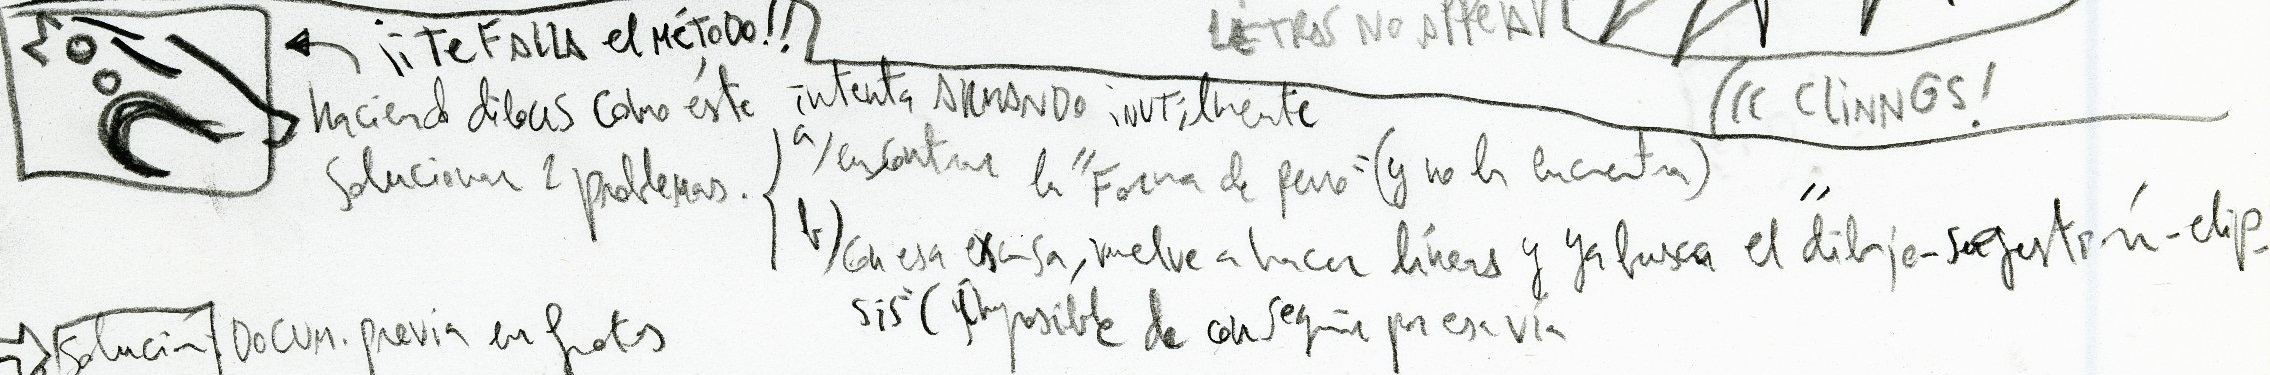 ¡¡Te FALLA el MÉTODO!!
LETRAS NO APPEAR
((( CLINNGS!
haciendo dibujos como éste intenta ARMANDO inutilmente
solucionar 2 problemas.
a/ encontrar la "Forma de perro" (y no la encuentra)
b) con esa excusa, vuelve a hacer líneas y ya busca el "dibujo-sugestión-elip-
sis" (imposible de conseguir por esa vía
Solución/ DOCUM. previa en fotos